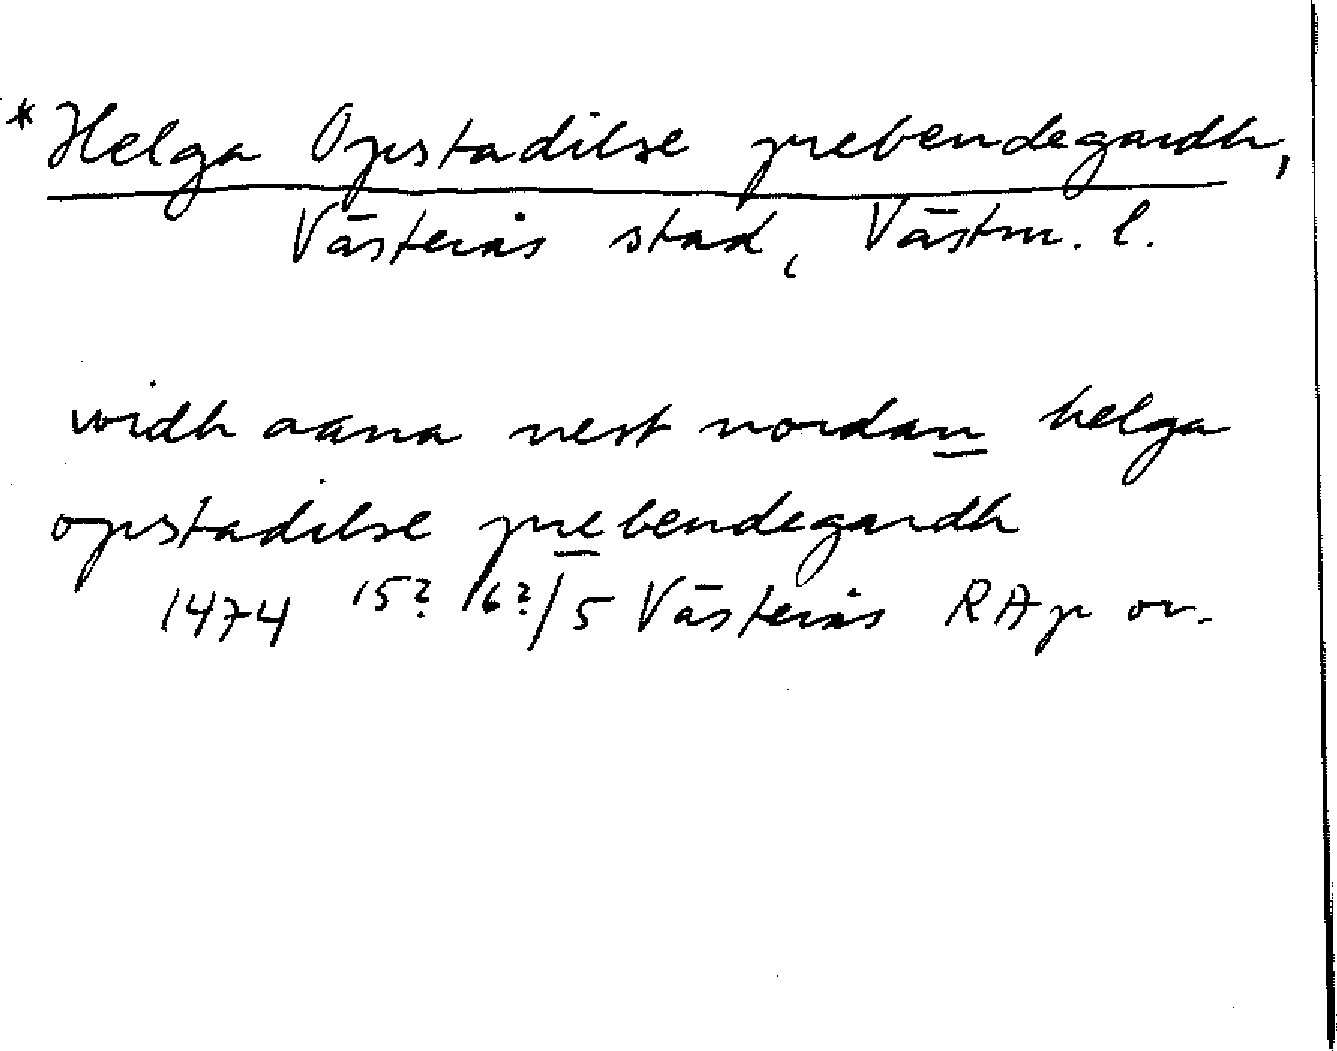 *Helga Opstadilse prebendegardh,
Västerås stad, Västm. l.
widh aana nest nordan helga
opstadilse prebendegardh
1474 15? 16?/5 Västerås RAp or.